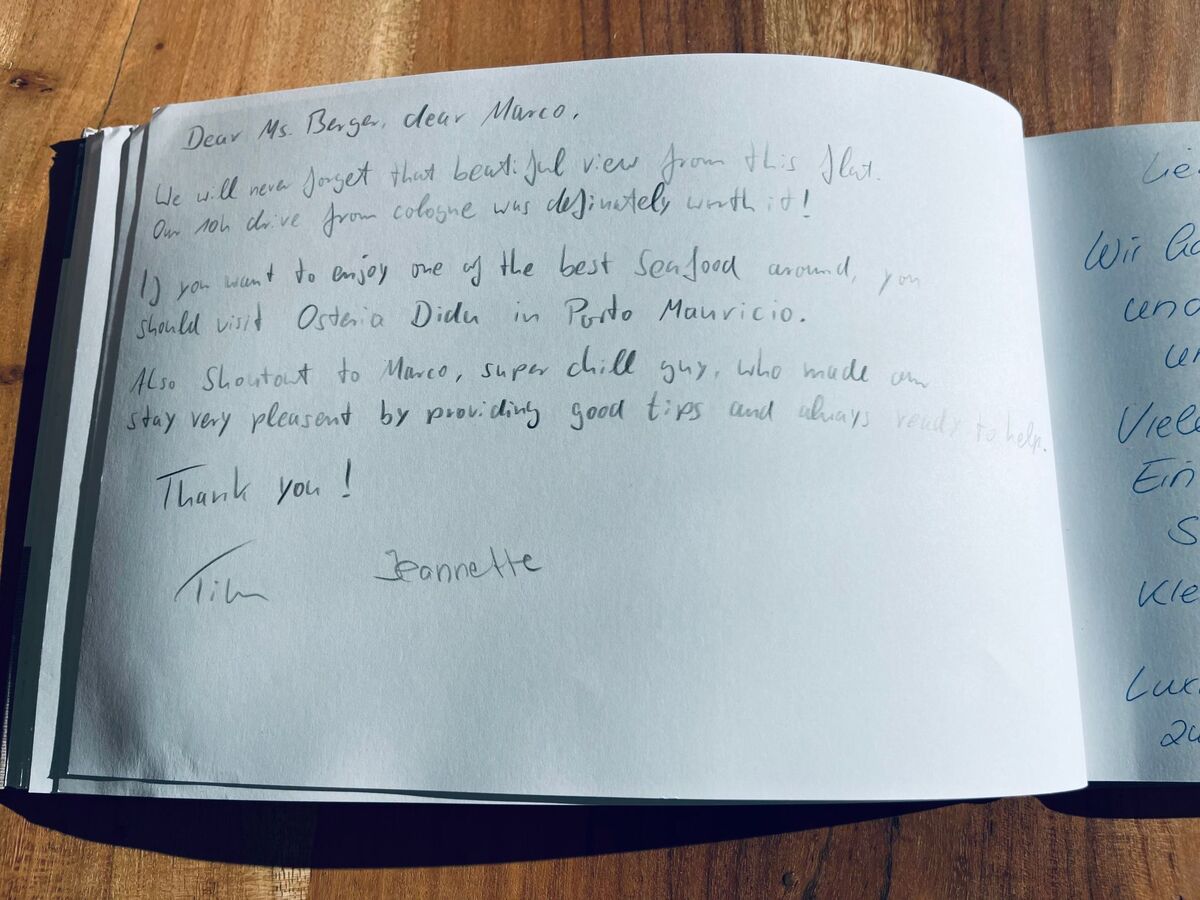 Dear Ms. Berger, dear Marco,
We will never forget that beatiful view from this flat.
Our 10h drive from cologne was definately worth it!
If you want to enjoy one of the best Seafood around, you
should visit Osteria Didu in Porto Mauricio.
Also Shoutout to Marco, super chill guy, who made our
stay very pleasent by providing good tips and always ready to help.
Thank you!
Jeannette
Wir
und
Viele
Ein